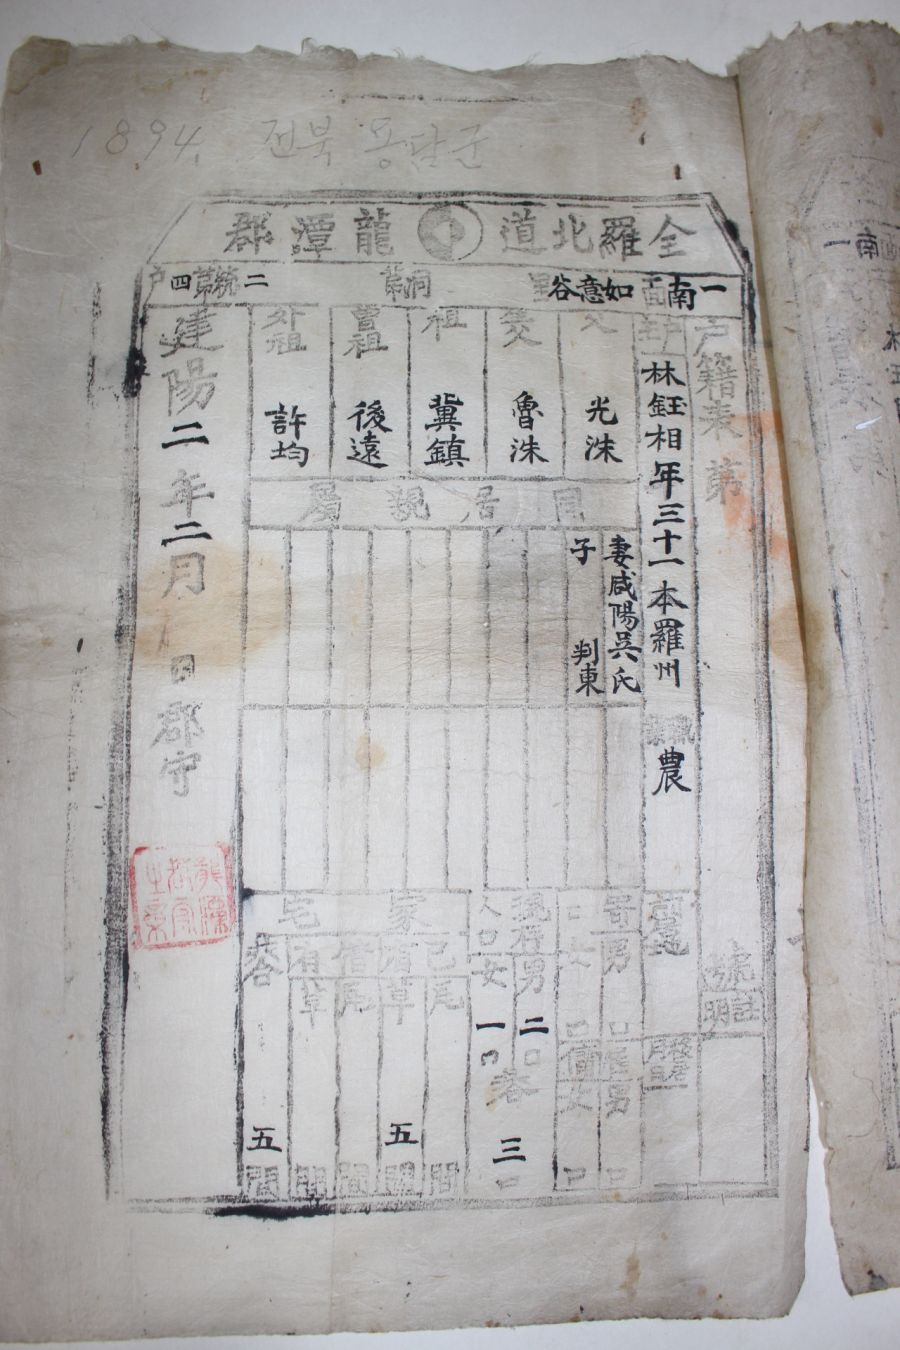 1894. 전북 용담군
全羅北道 龍潭郡
一南面 如意谷里 洞第 二統第四戶
戶籍表 第 號
戶主 林鈺相 年三十一 本羅州 職業 農
父 光洙
生父 魯洙
祖 冀鎮
曾祖 後遠
外祖 許均
同居親屬
妻咸陽吳氏
子 判東
寄口 男 口 女 口
雇傭 男 口 女 口
現存人口 男 二口 女 一口 共 三口
家宅
己有 瓦 間 草 五間
借有 瓦 間 草 間
共合 五間
建陽二年二月 日 郡守